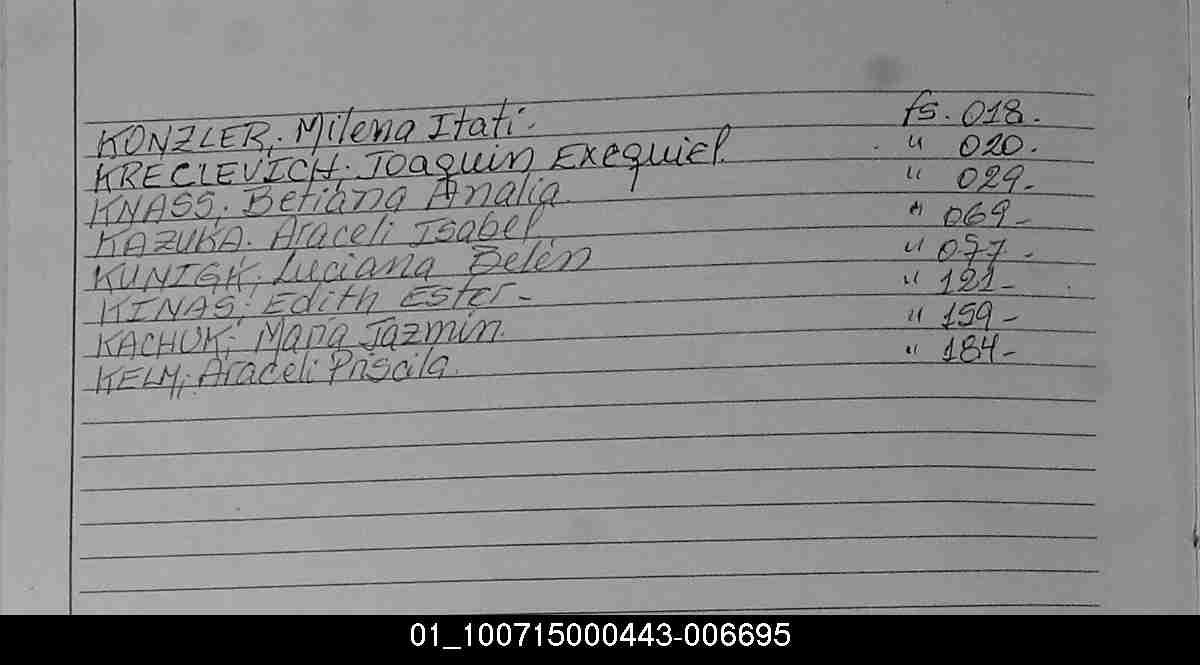 KONZLER; Milena Itati. fs. 018.
KRECLEVICH. Joaquin Exequiel. " 020.
KNASS; Betiana Analia. " 029-
KAZUKA. Araceli Isabel " 069-
KUNIGK; Luciana Belén " 077-
KINAS; Edith Ester- " 121-
KACHUK; Maria Jazmin. " 159-
KELM; Araceli Priscila. " 184-
01_100715000443-006695